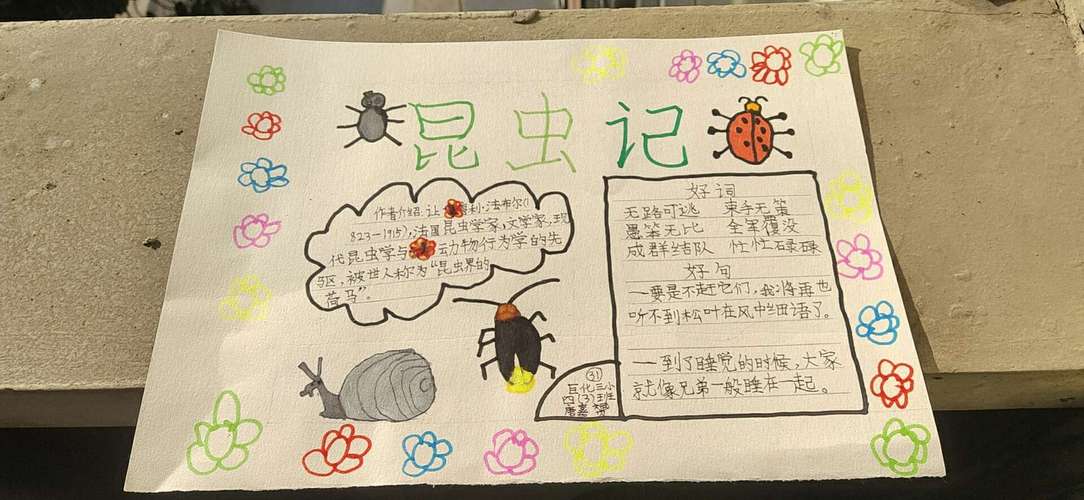 昆虫记
作者介绍:让 亨利·法布尔(1
823-1915),法国昆虫学家,文学家,现
代昆虫学与 动物行为学的先
驱,被世人称为“昆虫界的
荷马”。
好词
无路可逃 束手无策
愚笨无比 全军覆没
成群结队 忙忙碌碌
好句
一要是不赶它们,我将再也
听不到松叶在风中细语了。
一到了睡觉的时候,大家
就像兄弟一般睡在一起。
31
巨化三小
四(3)班
唐嘉